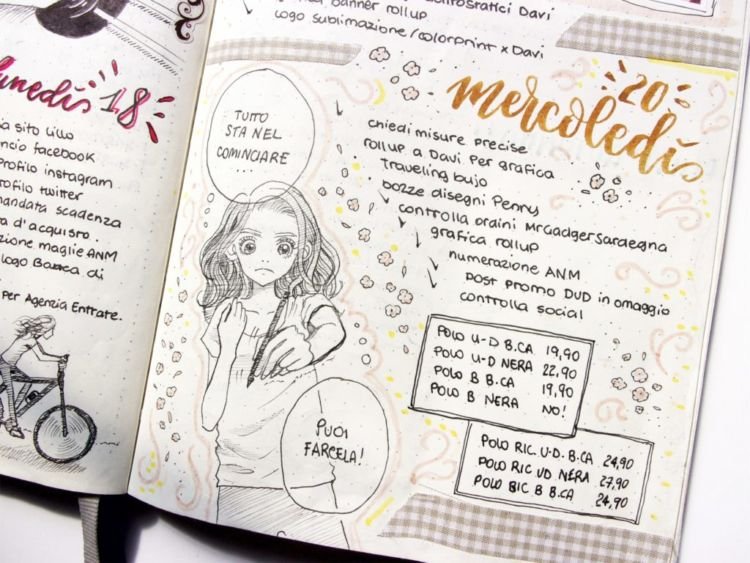 lunedì 18
sito Lillo
facebook
profilo instagram
profilo twitter
mandata scadenza
d'acquisto
maglie ANM
logo
di
per Agenzia Entrate.
Davi
banner rollup
Logo sublimazione/colorprint x Davi
mercoledì 20
chiedi misure precise
rollup a Davi per grafica
Traveling bujo
bozze disegni Penny
controlla ordini MrGadgetSardegna
grafica rollup
numerazione ANM
post promo DUD in omaggio
controlla social
TUTTO
STA NEL
COMINCIARE
...
PUOI
FARCELA!
POLO U-D B.CA 19,90
POLO U-D NERA 22,90
POLO B B.CA 19,90
POLO B NERA NO!
POLO RIC U.D. B.CA 24,90
POLO RIC UD NERA 27,90
POLO BIC B B.CA 24,90